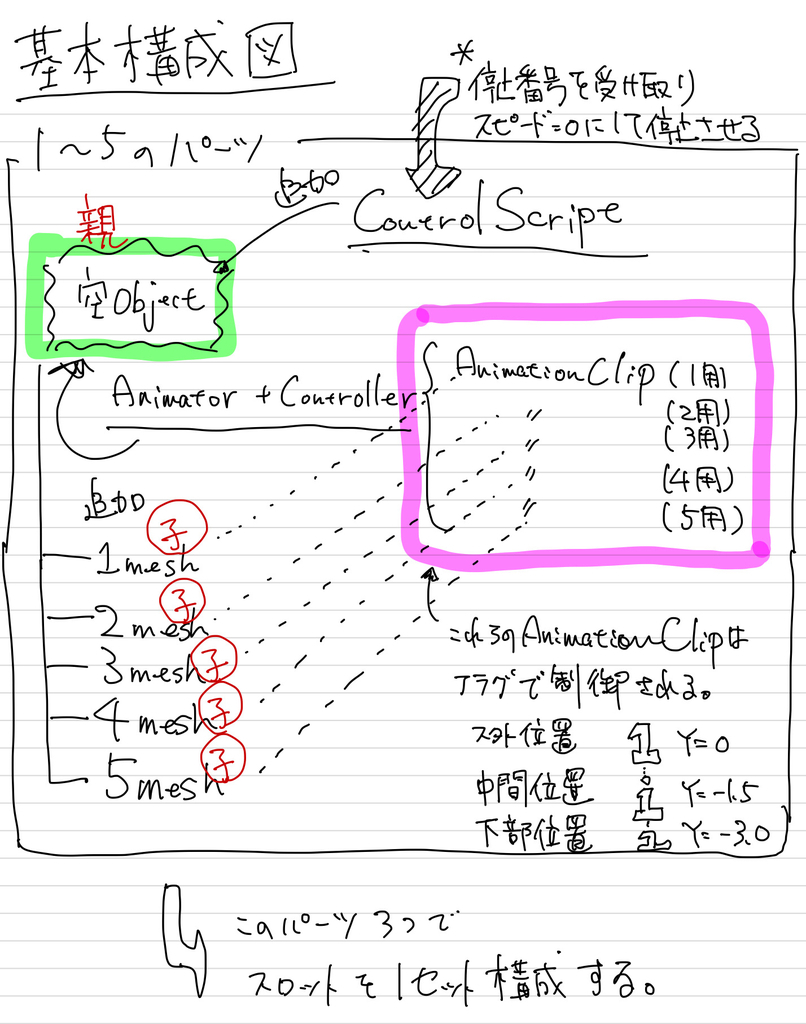 基本構成図
*
停止番号を受け取り
スピード=0にして停止させる
1〜5のパーツ
追加
Control Script
親
空Object
Animator + Controller
AnimationClip (1用)
〃 (2用)
〃 (3用)
〃 (4用)
〃 (5用)
追加
子
1mesh
子
2mesh
子
3mesh
子
4mesh
子
5mesh
これらのAnimationClipは
フラグで制御される。
スタート位置 1 Y=0
中間位置 1 Y=-1.5
下部位置 Y=-3.0
このパーツ3つで
スロットを1セット構成する。